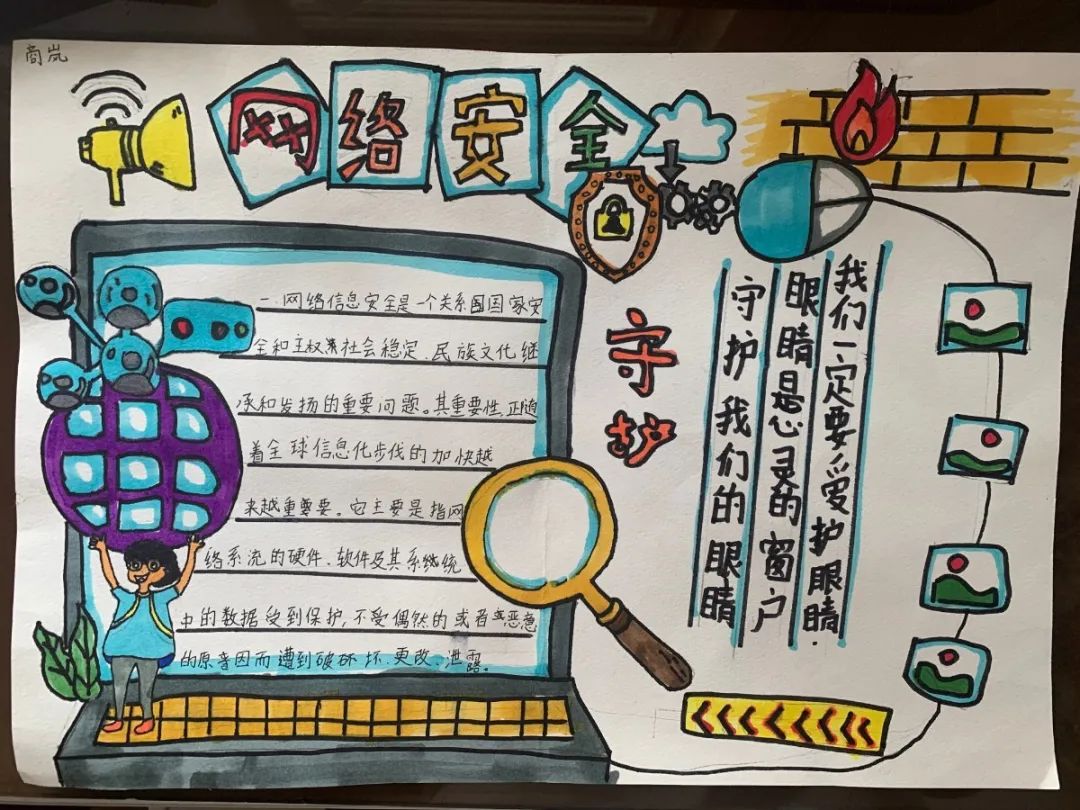 商岚
网络安全
一.网络信息安全是一个关系国家安
全和主权、社会稳定、民族文化继
承和发扬的重要问题。其重要性,正随
着全球信息化步伐的加快越
来越重要。它主要是指网
络系流的硬件、软件及其系统
中的数据受到保护,不受偶然的或者恶意
的原因而遭到破坏、更改、泄露。
守护
我们一定要爱护眼睛.
眼睛是心灵的窗户
守护我们的眼睛